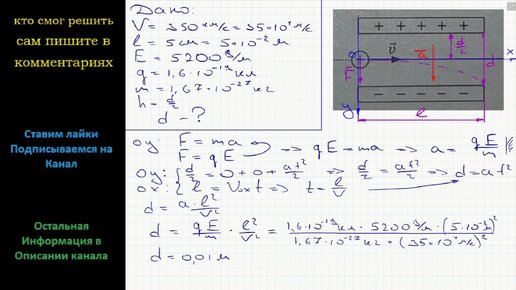 кто смог решить
сам пишите в
комментариях
Ставим лайки
Подписываемся на
Канал
Остальная
Информация в
Описании канала
Дано:
V = 350 км/с = 35·10⁴ м/с
l = 5 см = 5·10⁻² м
E = 5200 В/м
q = 1,6·10⁻¹⁹ кл
m = 1,67·10⁻²⁷ кг
h = d/2
d - ?
+ + + + +
d/2
x
v
a
F
d
y
l
oy: F = ma
F = qE => qE = ma => a = qE/m
oy: { d/2 = 0 + 0 + at²/2 => d/2 = at²/2 => d = at²
ox: { l = V₀ₓt => t = l/V
d = a·l²/V²
d = qE/m · l²/V² = 1,6·10⁻¹⁹ кл · 5200 В/м · (5·10⁻² м)² / 1,67·10⁻²⁷ кг · (35·10⁴ м/с)²
d = 0,01 м